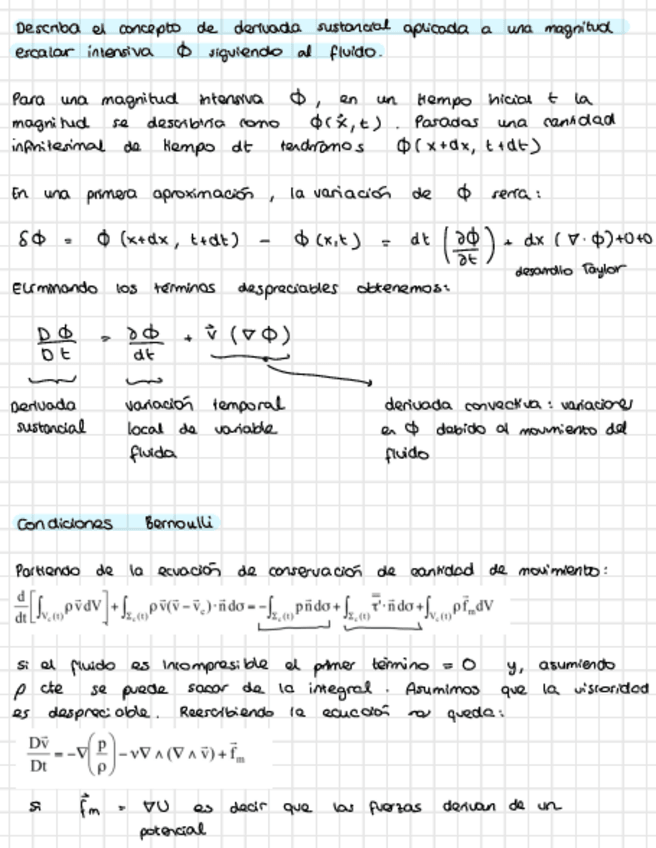 Describa el concepto de derivada sustancial aplicada a una magnitud
escalar intensiva Φ siguiendo al fluido.
Para una magnitud intensiva Φ, en un tiempo inicial t la
magnitud se describiría como Φ(x⃗,t). Pasadas una cantidad
infinitesimal de tiempo dt tendríamos Φ(x+dx, t+dt)
En una primera aproximación, la variación de Φ serra:
δΦ = Φ(x+dx, t+dt) - Φ(x,t) = dt (∂Φ/∂t) + dx (∇·Φ)+0+0
desarrollo Taylor
Eliminando los términos despreciables obtenemos:
DΦ/Dt = ∂Φ/dt + v⃗ (∇Φ)
Derivada variación temporal derivada convectiva: variaciones
sustancial local de variable en Φ debido al movimiento del
fluida fluido
Condiciones Bernoulli
Partiendo de la ecuación de conservación de cantidad de movimiento:
d/dt[∫_{V_c(t)} ρv⃗dV] + ∫_{Σ_c(t)} ρv⃗(v⃗−v⃗_c)·n⃗dσ = −∫_{Σ_c(t)} pn⃗dσ + ∫_{Σ_c(t)} τ̿'·n⃗dσ + ∫_{V_c(t)} ρf⃗_m dV
si el fluido es incompresible el primer término = 0 y, asumiendo
ρ cte se puede sacar de la integral. Asumimos que la viscosidad
es despreciable. Reescribiendo la ecuación queda:
Dv⃗/Dt = −∇(p/ρ) − ν∇∧(∇∧v⃗) + f⃗_m
si f⃗m = ∇U es decir que las fuerzas derivan de un
potencial